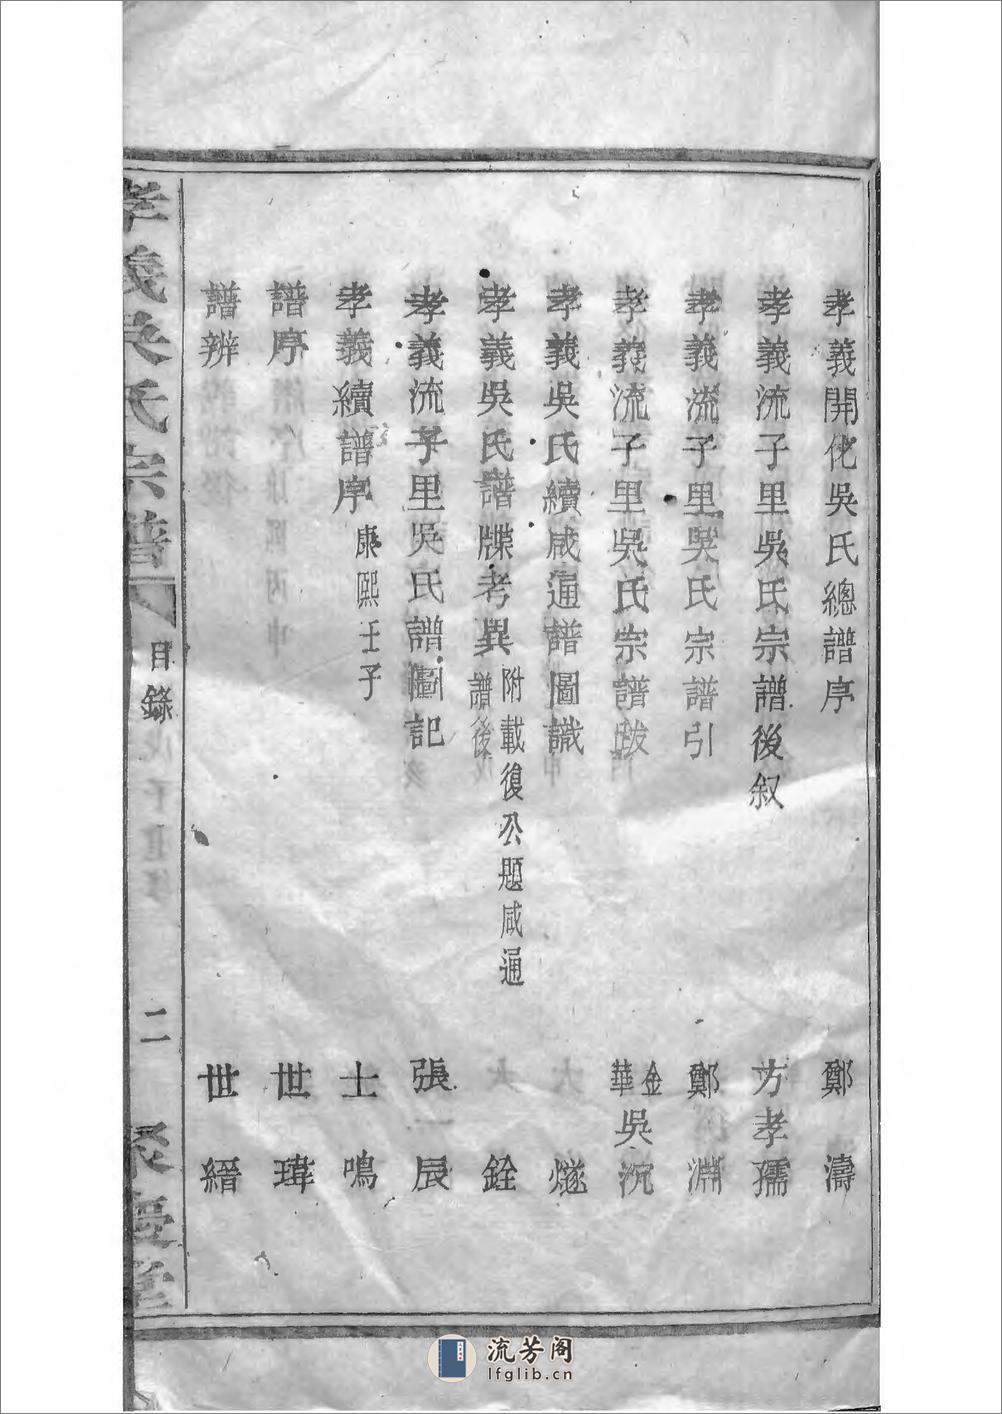 孝義開化吳氏總譜序 鄭濤
孝義流子里吳氏宗譜後叙 方孝孺
孝義流子里吳氏宗譜引 鄭淵
孝義流子里吳氏宗譜跋 金華吳沉
孝義吳氏續咸通譜圖識 大燧
孝義吳氏譜牒考異 附載復公題咸通譜後 大銓
孝義流子里吳氏譜圖記 張辰
孝義續譜序 康熙壬子 士鳴
譜序 世瑋
譜辨 世縉
孝義吳氏宗譜 目錄 二 聚慶堂
流芳阁
lfglib.cn